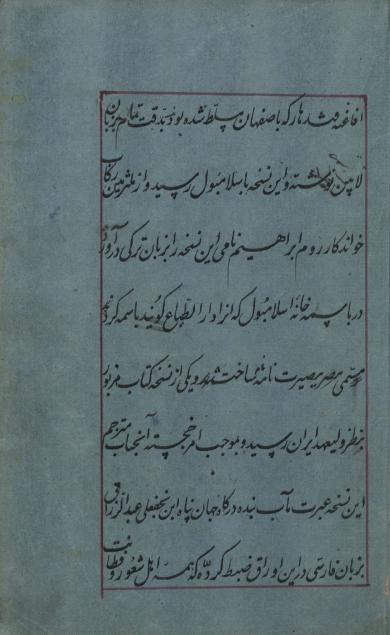 افاغنه قندهار که باصفهان مسلط شده بودند بدقت تمام بزبان
لاتین نوشته و این نسخه باسلامبول رسید و از ملتزمین رکاب
خواندکار روم ابراهیم نامی این نسخه را بزبان ترکی در آورده
در باسمه خانۀ اسلامبول که انرا دار الطباع گویند باسمه کردند
و مسمی بعبرت نامه ساخت شد و یکی از نسخه کتاب مزبور
بنظر ولیعهد ایران رسید و بموجب امر خجسته آنجناب مترجم
این نسخه عبرت مآب بنده درگاه جهان پناه ابن نجفعلی عبدالرزاق
بزبان فارسی در این اوراق ضبط کرده که همه اهل شعور و فطانت